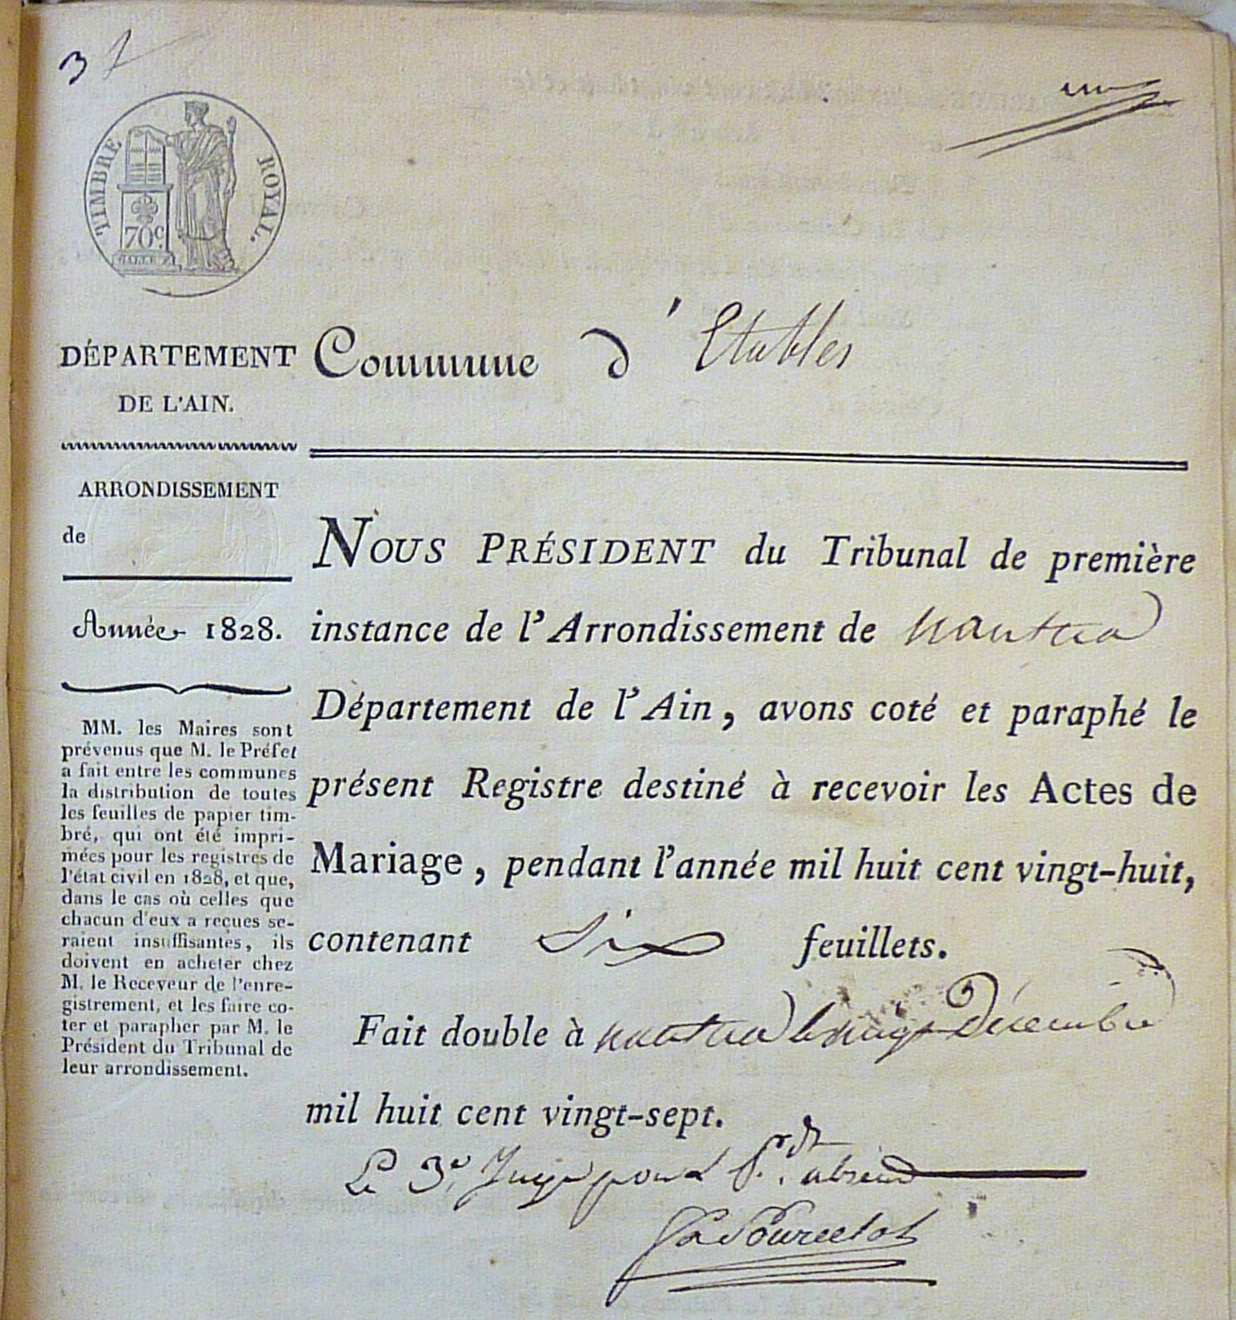 3
TIMBRE ROYAL.
70c
DÉPARTEMENT
DE L'AIN.
Commune d'Etables
ARRONDISSEMENT
de
Année 1828.
MM. les Maires sont
prévenus que M. le Préfet
a fait entre les communes
la distribution de toutes
les feuilles de papier tim-
bré, qui ont été impri-
mées pour les registres de
l'état civil en 1828, et que,
dans le cas où celles que
chacun d'eux a reçues se-
raient insuffisantes, ils
doivent en acheter chez
M. le Receveur de l'enre-
gistrement, et les faire co-
ter et parapher par M. le
Président du Tribunal de
leur arrondissement.
NOUS PRÉSIDENT du Tribunal de première
instance de l'Arrondissement de nantua
Département de l'Ain, avons coté et paraphé le
présent Registre destiné à recevoir les Actes de
Mariage, pendant l'année mil huit cent vingt-huit,
contenant six feuillets.
Fait double à nantua le vingt Décembre
mil huit cent vingt-sept.
Le 3e Juge pour le P.dt absent